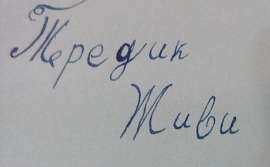 Тередик
Живи